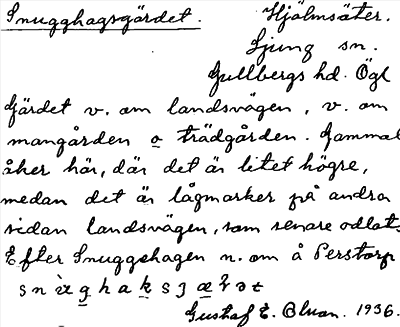 Snugghagsgärdet. Hjälmsäter.
Ljung sn.
Gullbergs hd. Ögl
Gärdet v. om landsvägen, v. om
mangården o trädgården. Gammal
åker här, där det är litet högre,
medan det är lågmarker på andra
sidan landsvägen, som senare odlats
Efter Snuggehagen n. om å Perstorp
Gustaf E. Bluon. 1936.